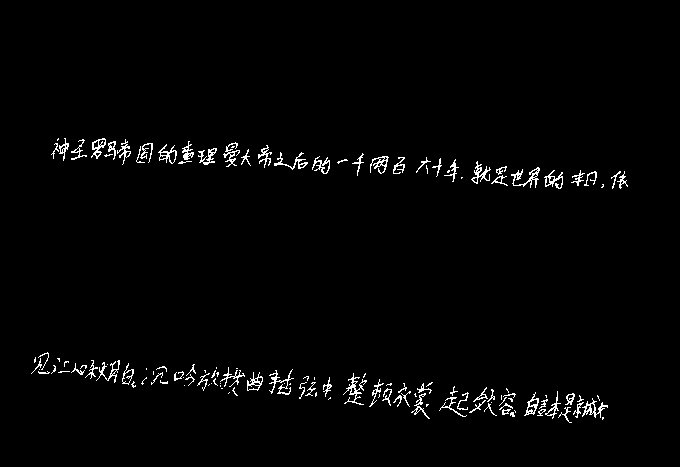 神圣罗马帝国的查理曼大帝之后的一千两百六十年.就是世界的末日,依
见江心秋月白。沉吟放拨曲插弦中,整顿衣裳起敛容。自言本是京城